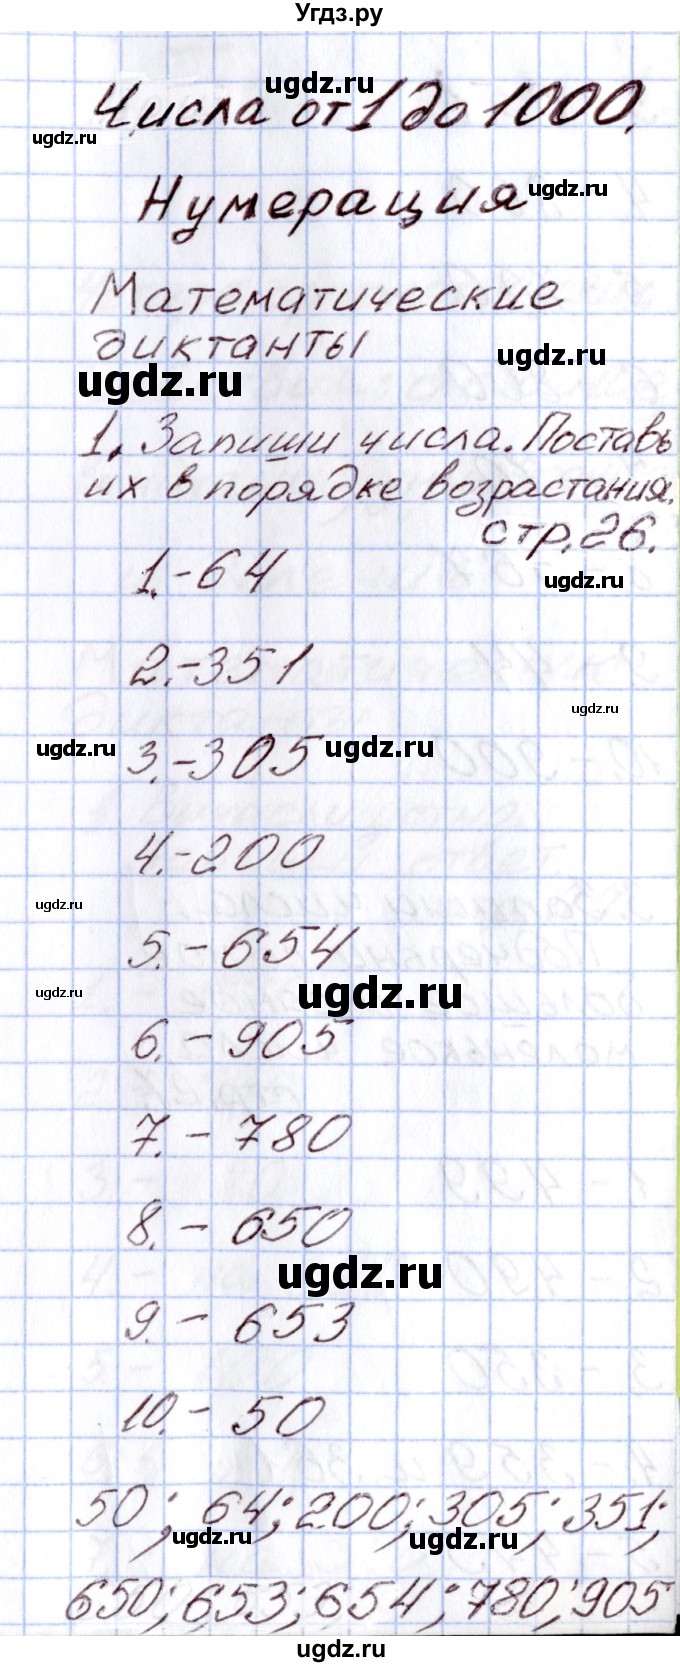 Угдз.ру
ugdz.ru
Числа от 1 до 1000.
ugdz.ru
Нумерация
ugdz.ru
Математические
диктанты
ugdz.ru
ugdz.ru
1. Запиши числа. Поставь
их в порядке возрастания.
стр. 26.
1.-64
ugdz.ru
2.-351
ugdz.ru
3.-305
ugdz.ru
ugdz.ru
4.-200
ugdz.ru
5.-654
ugdz.ru
ugdz.ru
6.-905
7.-780
8.-650
ugdz.ru
9.-653
10.-50
50; 64; 200; 305; 351;
ugdz.ru
ugdz.ru
650; 653; 654; 780; 905
ugdz.ru